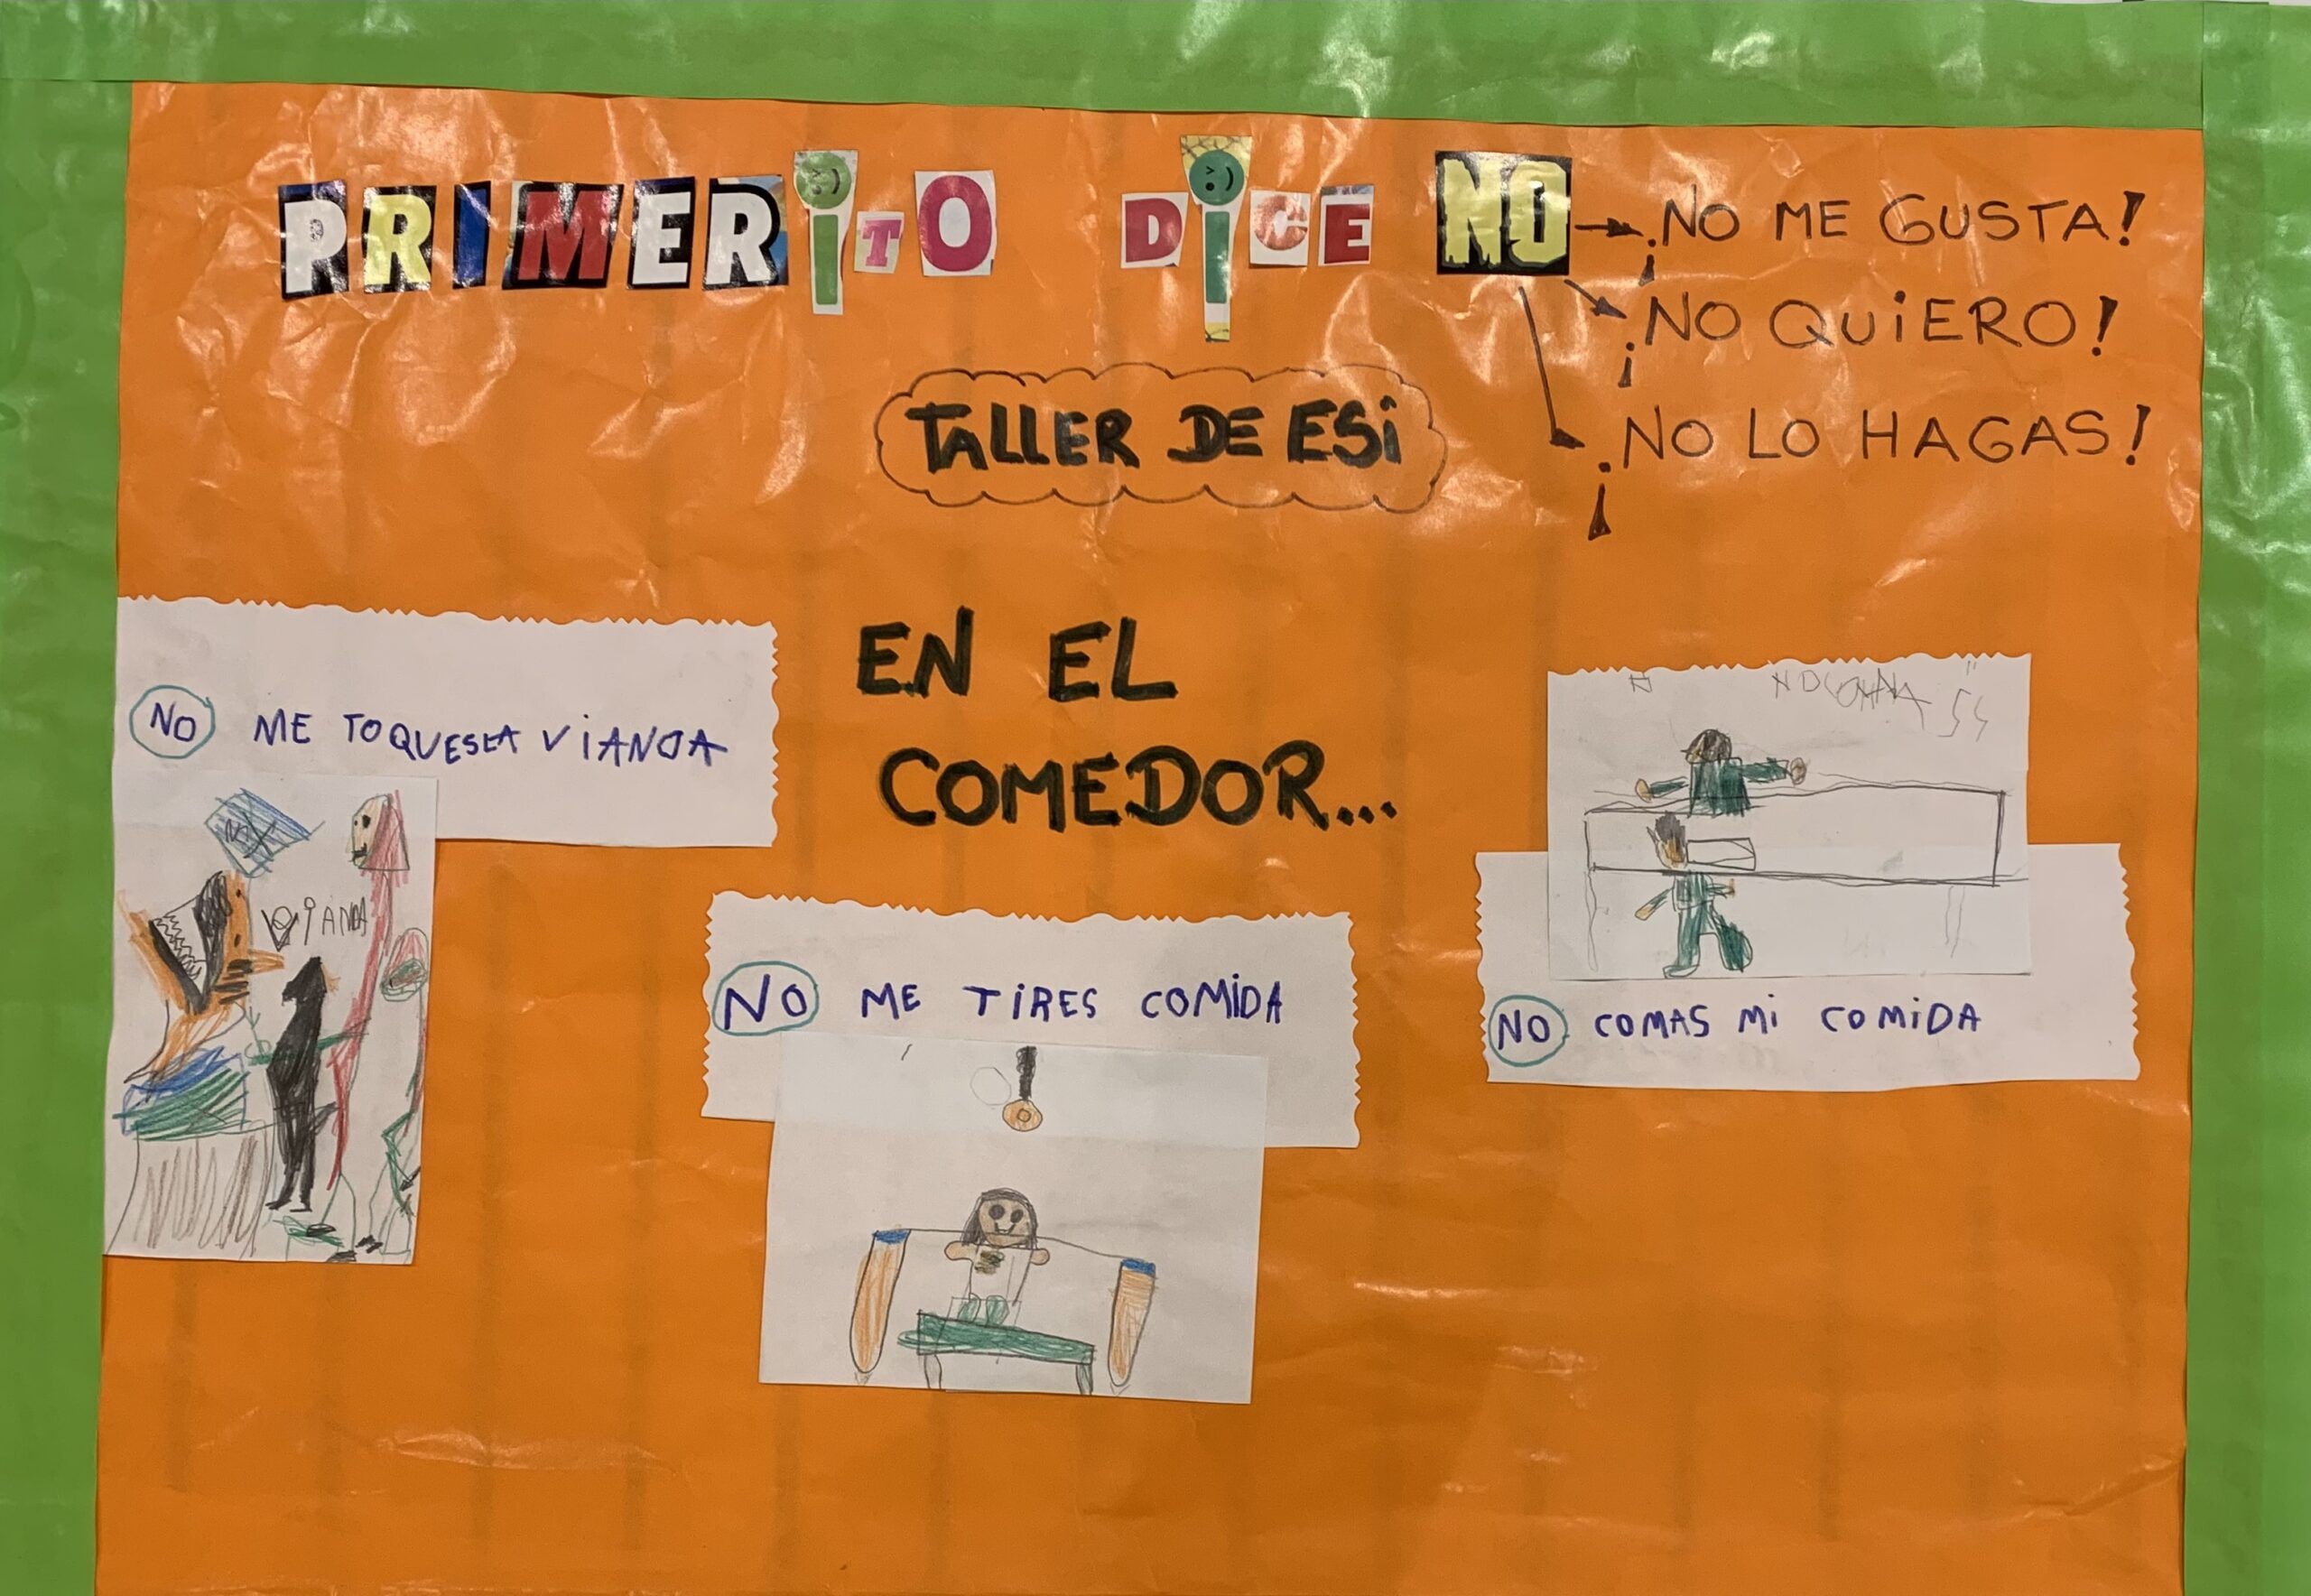 PRIMERiTO DiCE NO
¡NO ME GUSTA!
¡NO QUiERO!
¡NO LO HAGAS!
TALLER DE ESi
EN EL
COMEDOR...
NO ME TOQUES LA ViANDA
ViANDA
NO ME TiRES COMiDA
NO COMAS Mi COMiDA